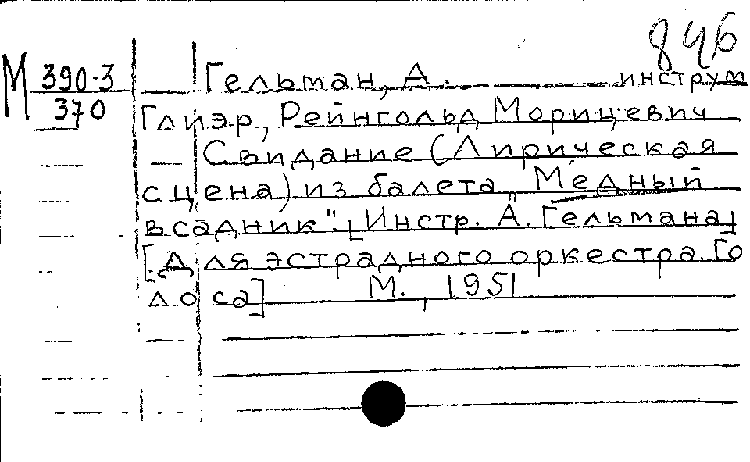 846
М 390-3 Гельман, А. инструм
370 Глиэр, Рейнгольд Морицевич
— Свидание (Лирическая
сцена) из балета „Медный
всадник". [Инстр. А. Гельмана]
[Для эстрадного оркестра. Го
лоса] М., 1951